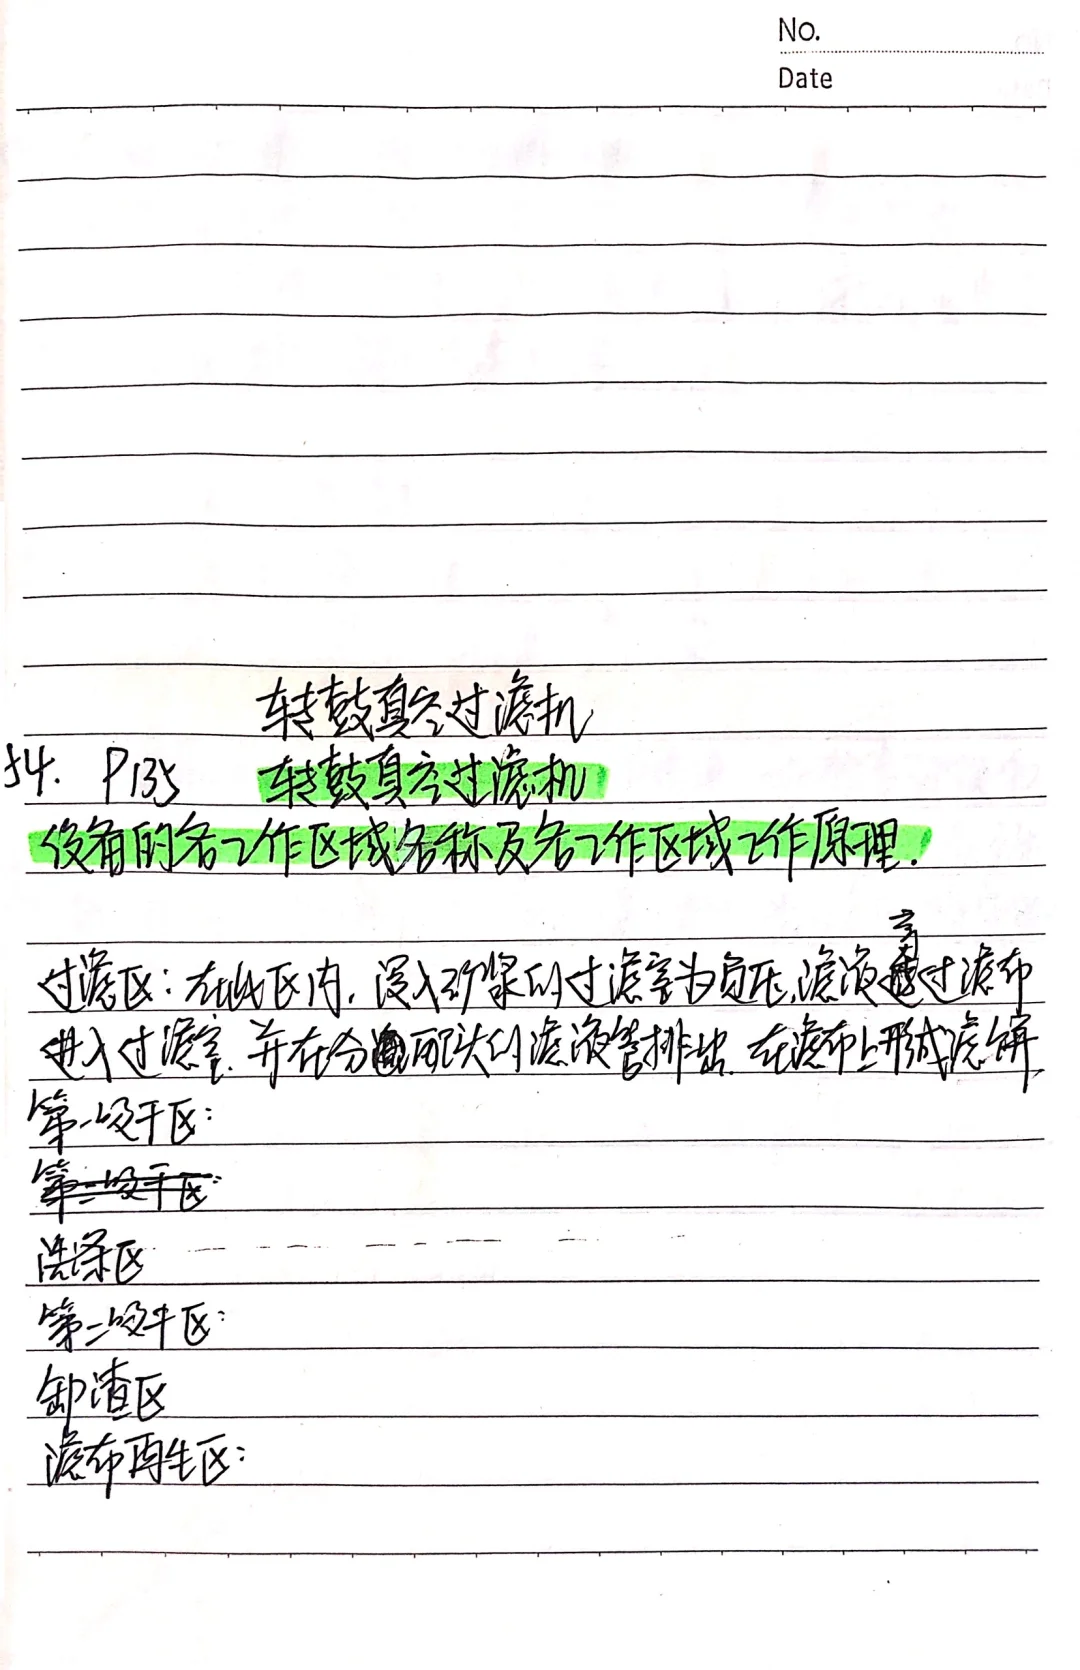 No.
Date
转鼓真空过滤机
54. P135 转鼓真空过滤机
设有的各工作区域名称及各工作区域工作原理.
过滤区：在此区内，浸入矿浆的过滤室为负压，滤液穿过滤布
进入过滤室. 并在分配头的滤液管排出. 在滤布上形成滤饼
第一吸干区：
第二吸干区：
洗涤区
第二吸干区：
卸渣区
滤布再生区：